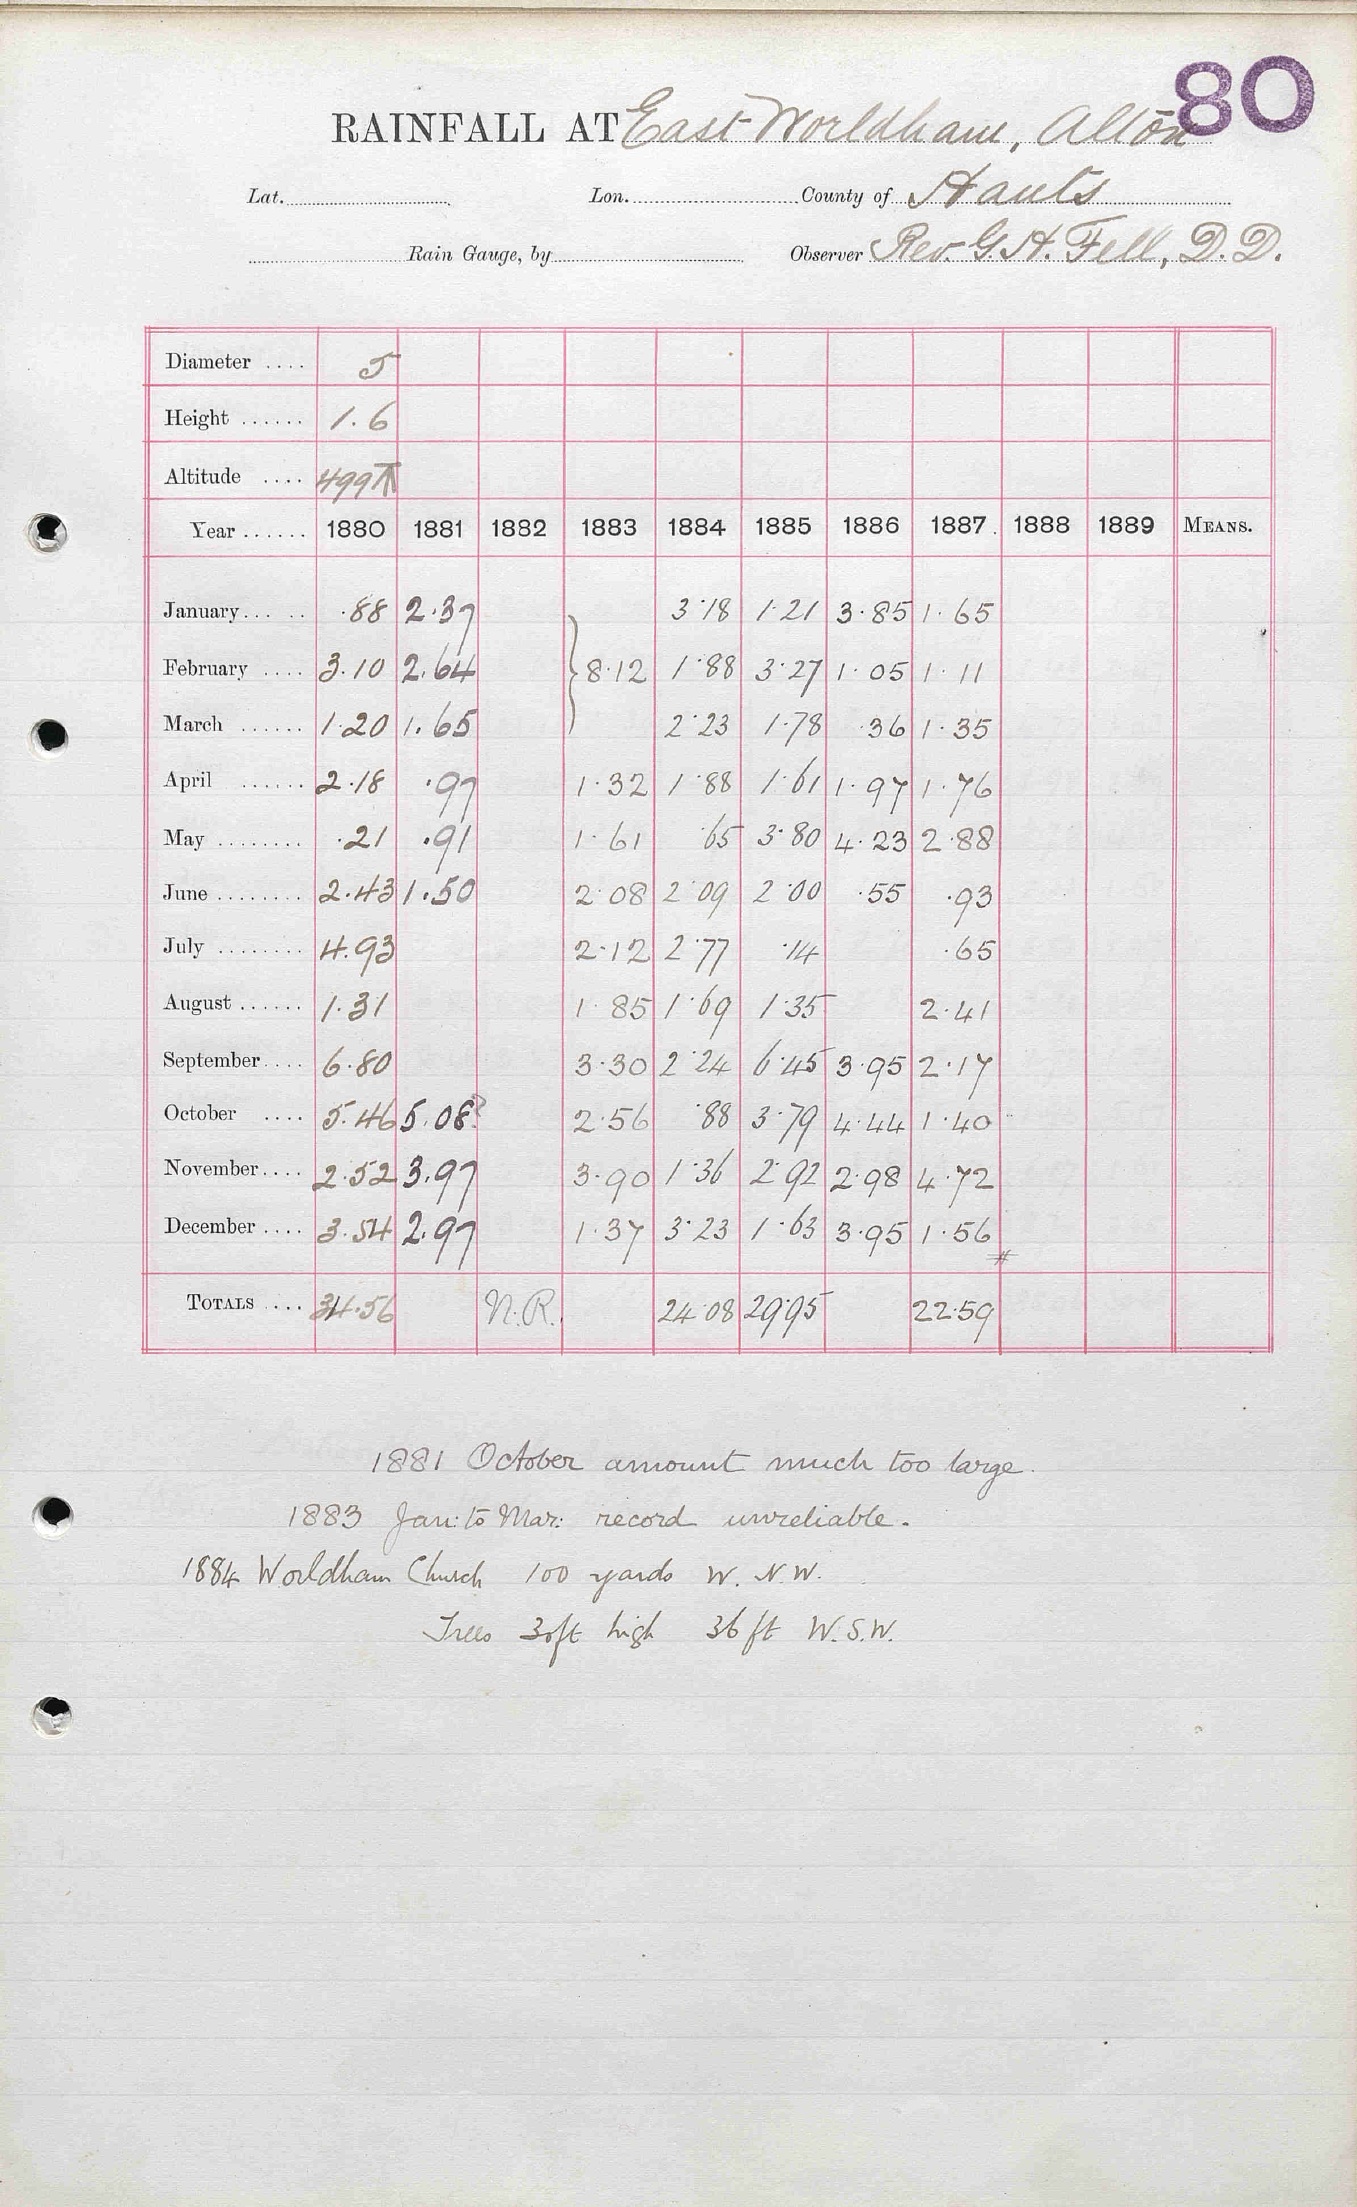 80
RAINFALL AT East Worldham, Alton
Lat. Lon. County of Hants
Rain Gauge, by Observer Rev. G. H. Fell, D.D.
Diameter .... 5
Height ...... 1.6
Altitude .... 499
Year ...... 1880 1881 1882 1883 1884 1885 1886 1887 1888 1889 MEANS.
January ... .. .88 2.37 3.18 1.21 3.85 1.65
February .... 3.10 2.64 } 8.12 1.88 3.27 1.05 1.11
March ...... 1.20 1.65 2.23 1.78 .36 1.35
April ...... 2.18 .97 1.32 1.88 1.61 1.97 1.76
May ........ .21 .91 1.61 .65 3.80 4.23 2.88
June ........ 2.43 1.50 2.08 2.09 2.00 .55 .93
July ........ 4.93 2.12 2.77 .14 .65
August ...... 1.31 1.85 1.69 1.35 2.41
September .... 6.80 3.30 2.24 6.45 3.95 2.17
October .... 5.46 5.08? 2.56 .88 3.79 4.44 1.40
November .... 2.52 3.97 3.90 1.36 2.92 2.98 4.72
December .... 3.54 2.97 1.37 3.23 1.63 3.95 1.56
#
TOTALS .... 34.56 N.R. 24.08 29.95 22.59
1881 October amount much too large.
1883 Jan: to Mar: record unreliable.
1884 Worldham Church 100 yards W. N.W.
Trees 30ft high 36 ft W.S.W.